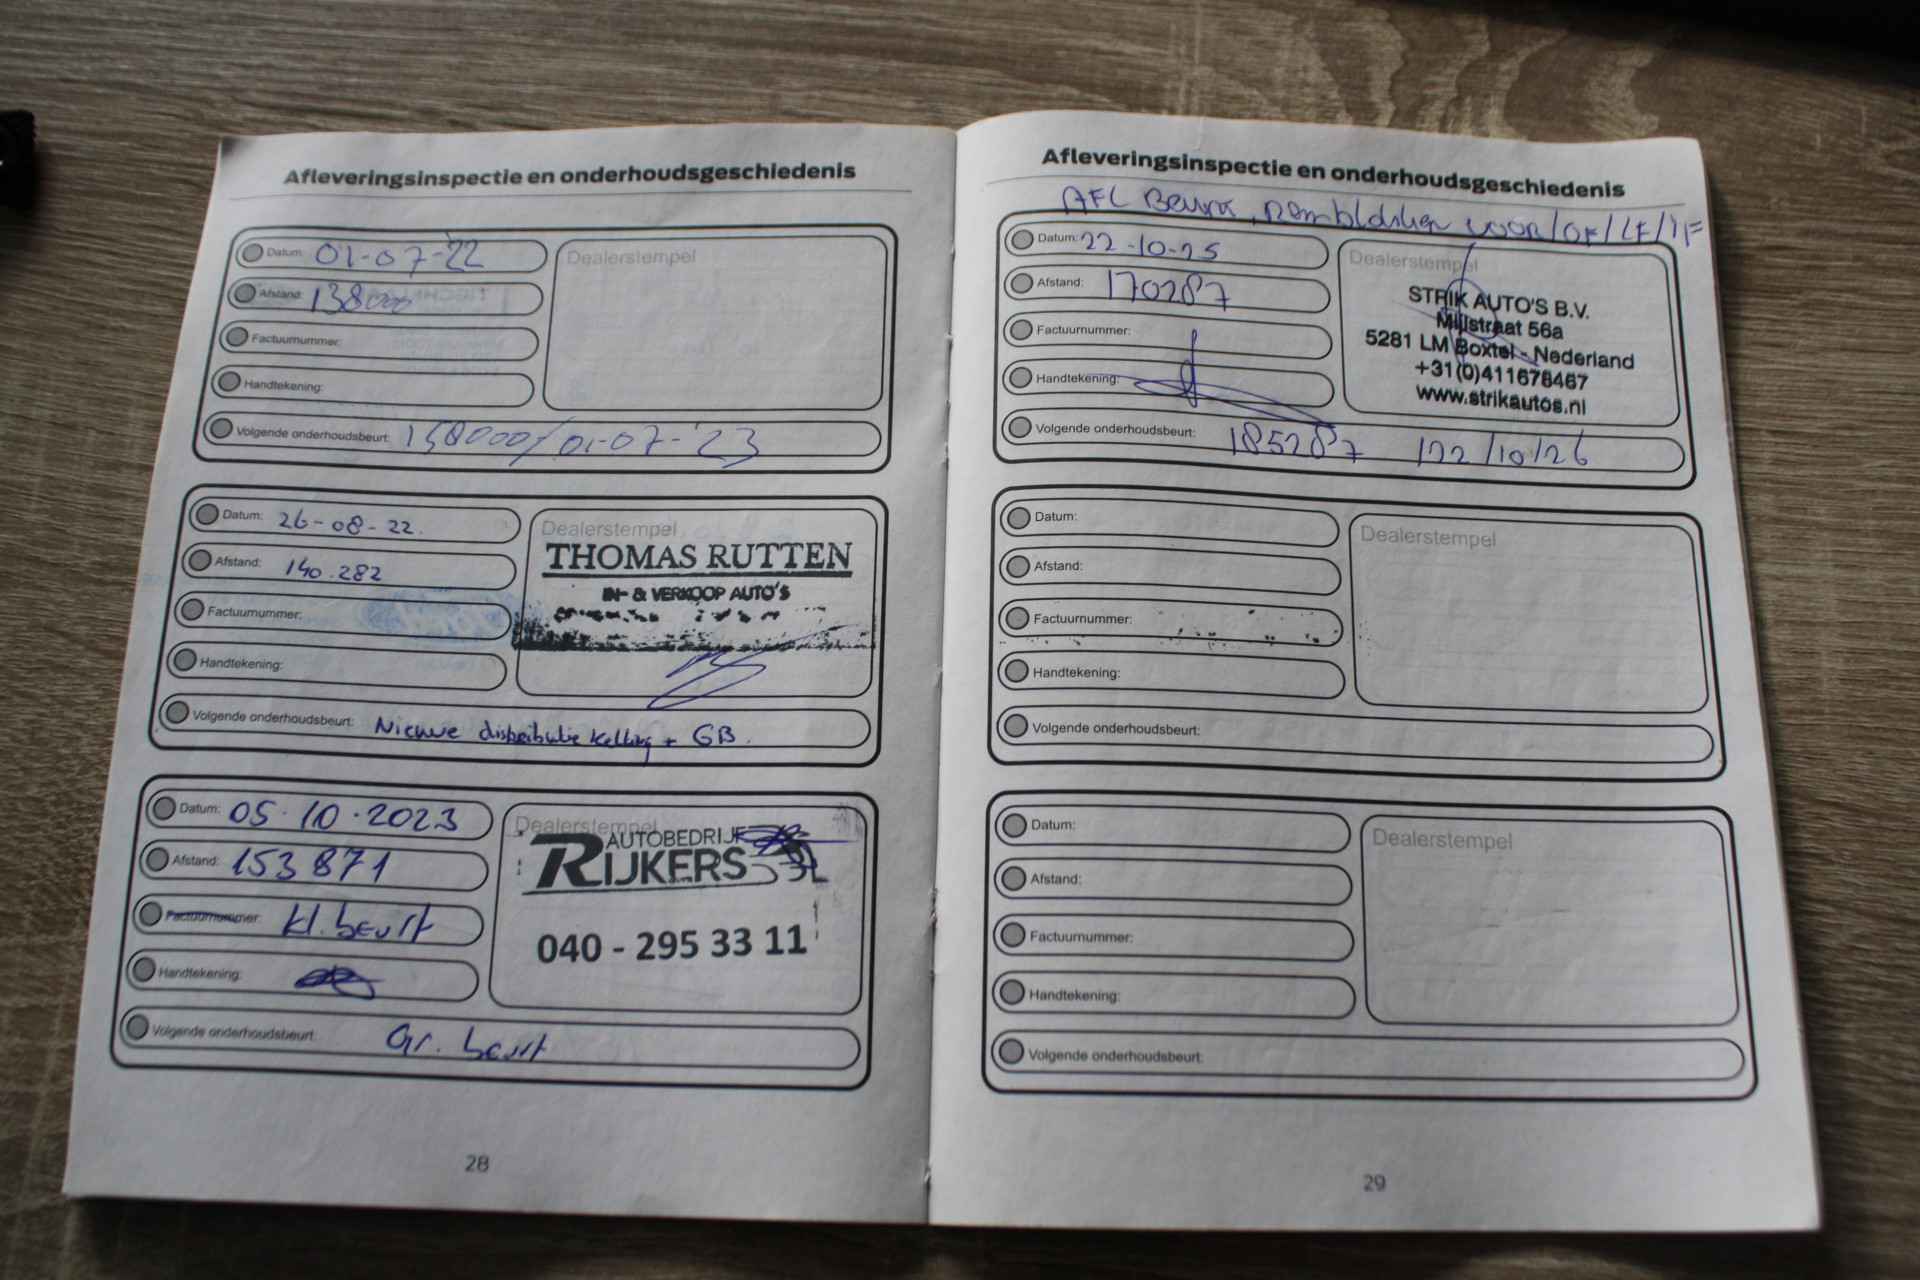 Afleveringsinspectie en onderhoudsgeschiedenis
Datum: 01-07-22
Afstand: 138000
Factuurnummer:
Handtekening:
Dealerstempel
Volgende onderhoudsbeurt: 158000/01-07-'23
Datum: 26-08-22.
Afstand: 140.282
Factuurnummer:
Handtekening:
Dealerstempel
THOMAS RUTTEN
IN- & VERKOOP AUTO'S
Volgende onderhoudsbeurt: Nieuwe distributie ketting + GB.
Datum: 05.10.2023
Afstand: 153871
Factuurnummer: kl. beurt
Handtekening:
Dealerstempel
AUTOBEDRIJF
RIJKERS
040 - 295 33 11
Volgende onderhoudsbeurt: Gr. beurt
28
Afleveringsinspectie en onderhoudsgeschiedenis
AFL Beurt, Remblokken voor/OF/LF/IF
Datum: 22-10-25
Afstand: 170287
Factuurnummer:
Handtekening:
Dealerstempel
STRIK AUTO'S B.V.
Mijlstraat 56a
5281 LM Boxtel - Nederland
+31(0)411678467
www.strikautos.nl
Volgende onderhoudsbeurt: 185287 /22/10/26
Datum:
Afstand:
Factuurnummer:
Handtekening:
Dealerstempel
Volgende onderhoudsbeurt:
Datum:
Afstand:
Factuurnummer:
Handtekening:
Dealerstempel
Volgende onderhoudsbeurt:
29